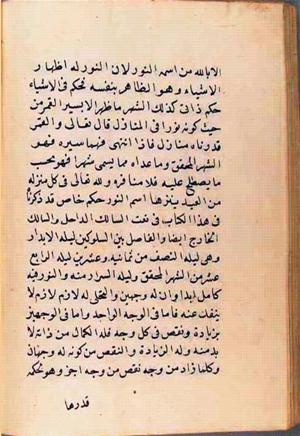 الا بالله من اسمه النور لان النور له اظهار
الاشياء وهو الظاهر بنفسه فحكم في الاشياء
حكم ذاتي كذلك الشهر ما ظهر الا بسير القمر من
حيث كونه نورا في المنازل قال تعالى والقمر
قدرناه منازل فاذا انتهى فيها سيره فهو
الشهر المحقق وما عداه مما يسمى شهرا فهو بحسب
ما يصطلح عليه فلا منافرة ولله تعالى في كل منزله
من العبد ينزلها اسم النور حكم خاص قد ذكرناه
في هذا الكتاب في نعت السالك الداخل والسالك
الخارج ايضا والفاصل بين السلوكين ليلة الابدار
وهي ليلة النصف من ثمانية وعشرين ليلة الرابع
عشر من الشهر المحقق وليلة السرار منه والنور فيه
كامل ابدا وان له وجهين والتجلى له لازم لازم لا
ينفك عنه فاما في الوجه الواحد واما في الوجهين
بزيادة ونقص في كل وجه فله الكمال من ذاته لا
بد منه وله الزيادة والنقص من كونه له وجهان
وكلما زاد من وجه نقص من وجه اخر وهو لحكمة
قدرها